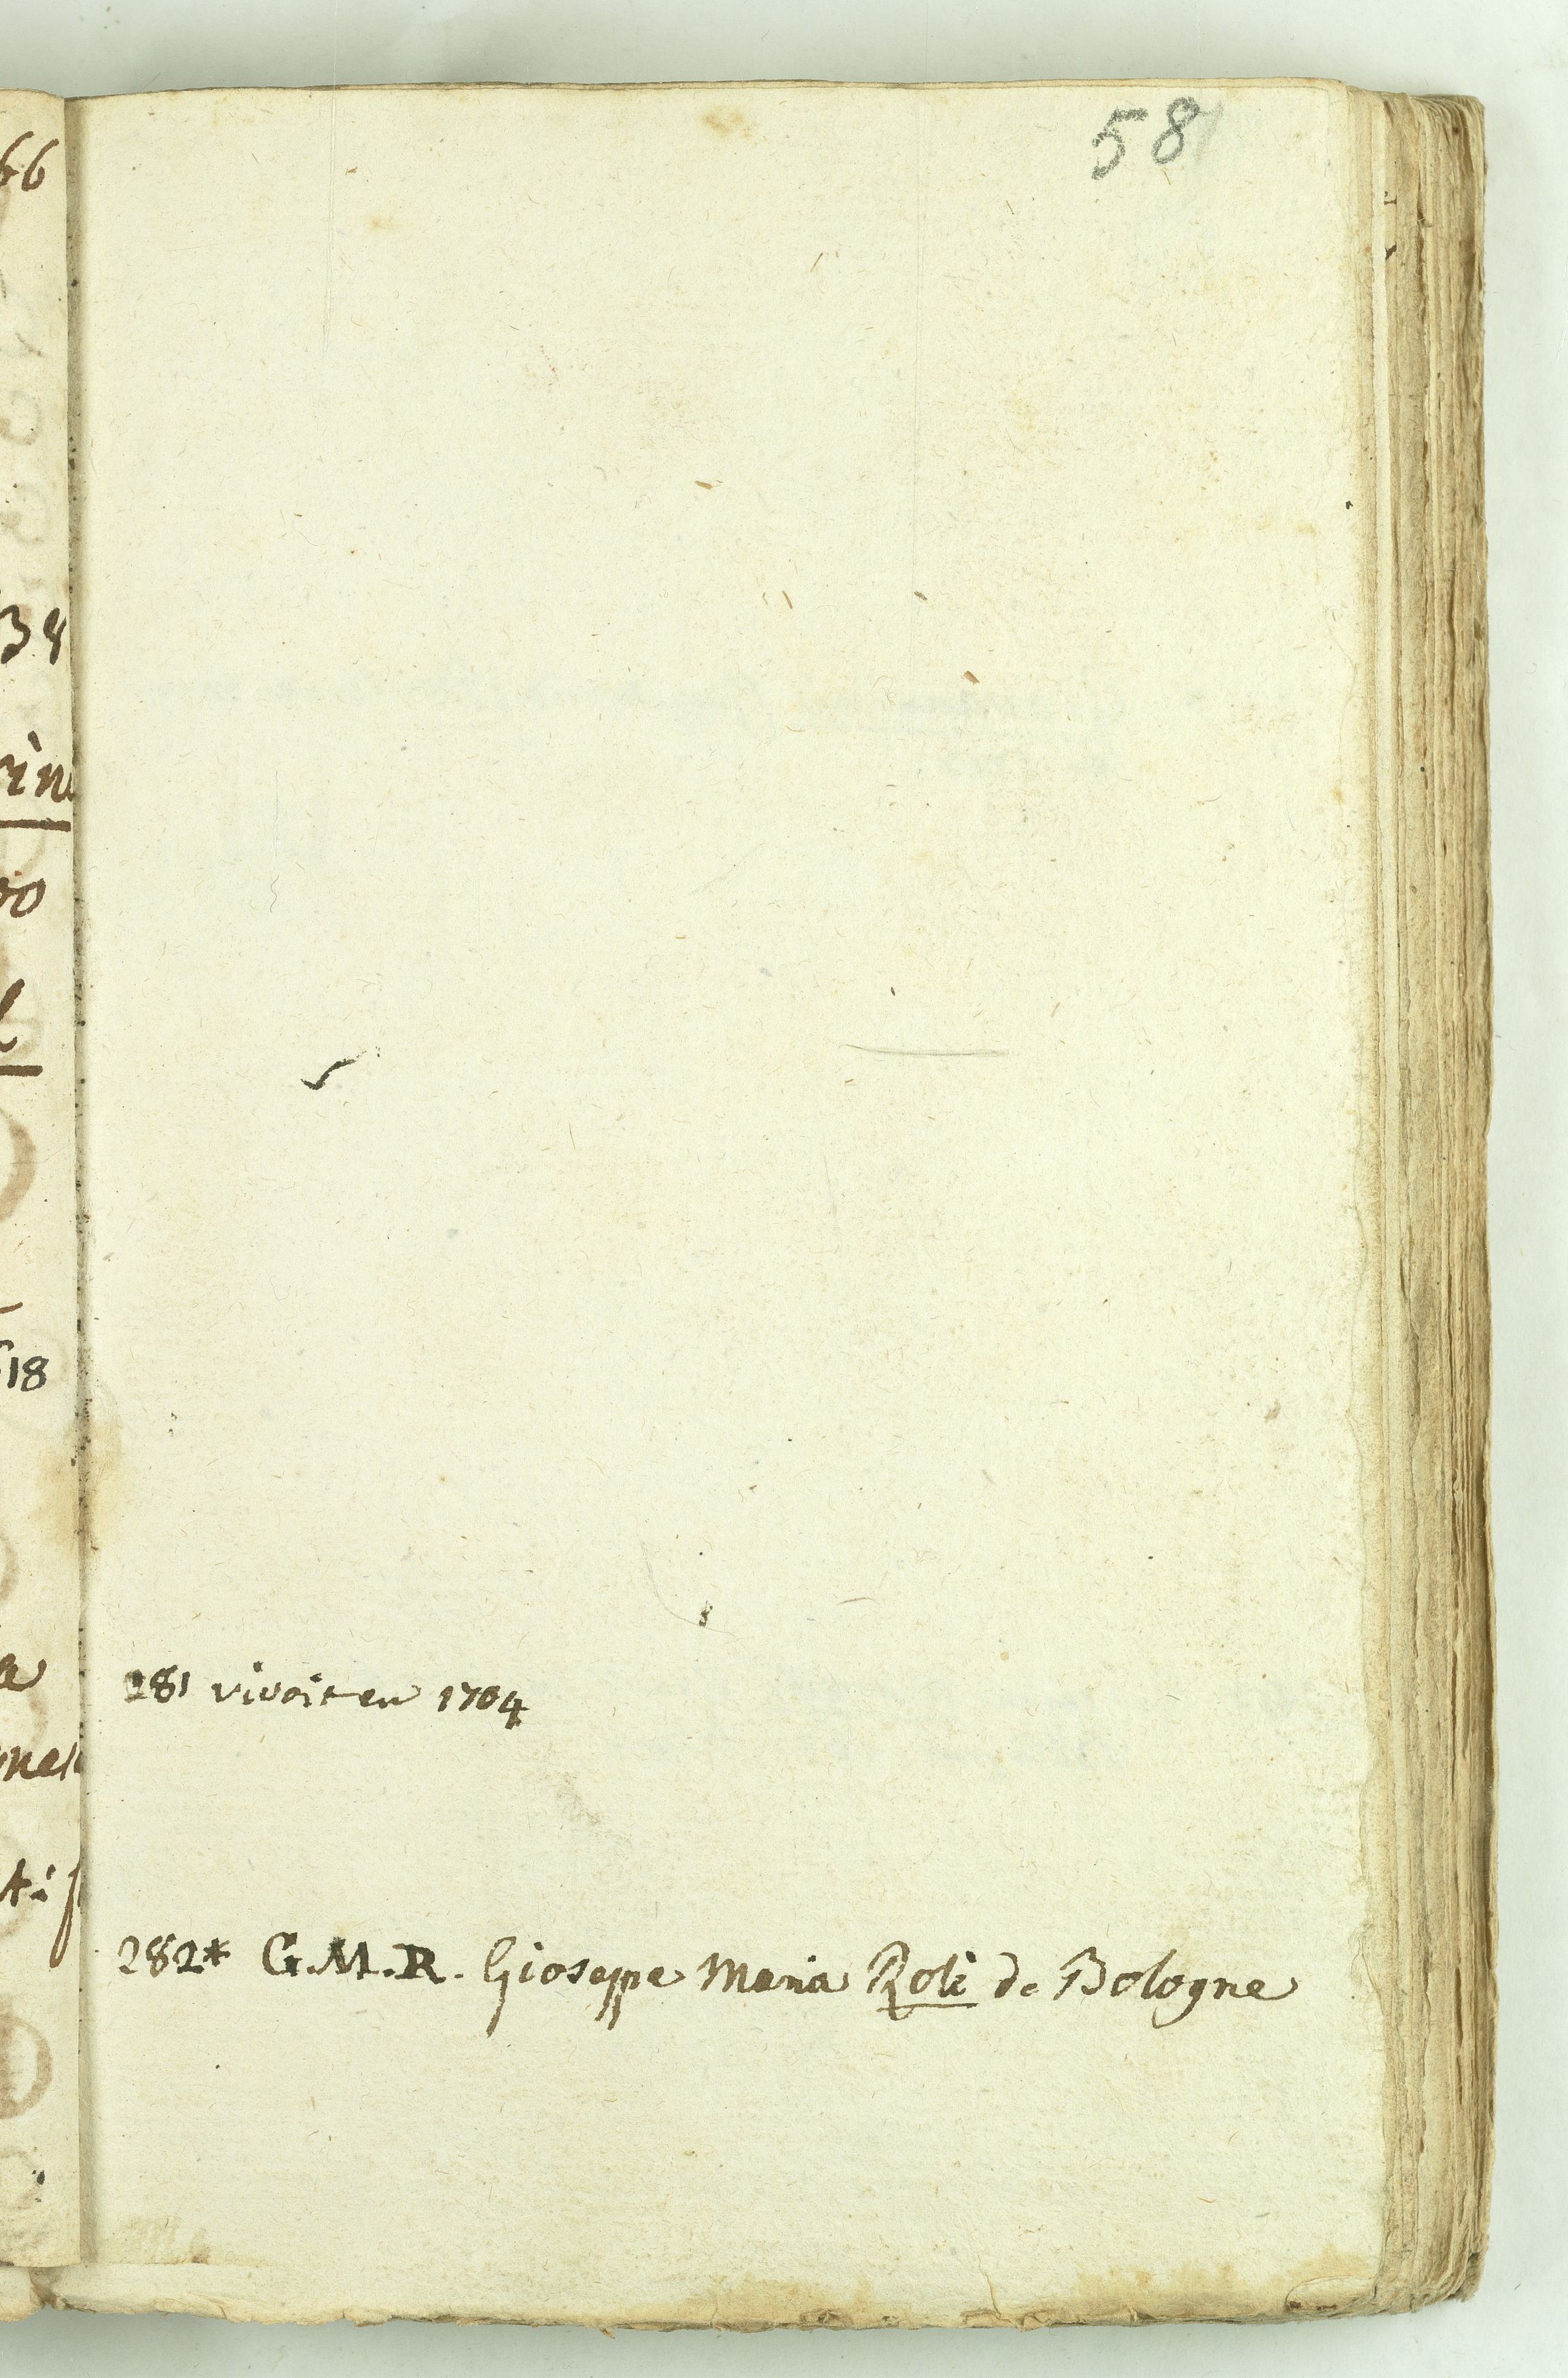 58
281 vivoit en 1704
282* G.M.R. Gioseppe Maria Roli de Bologne